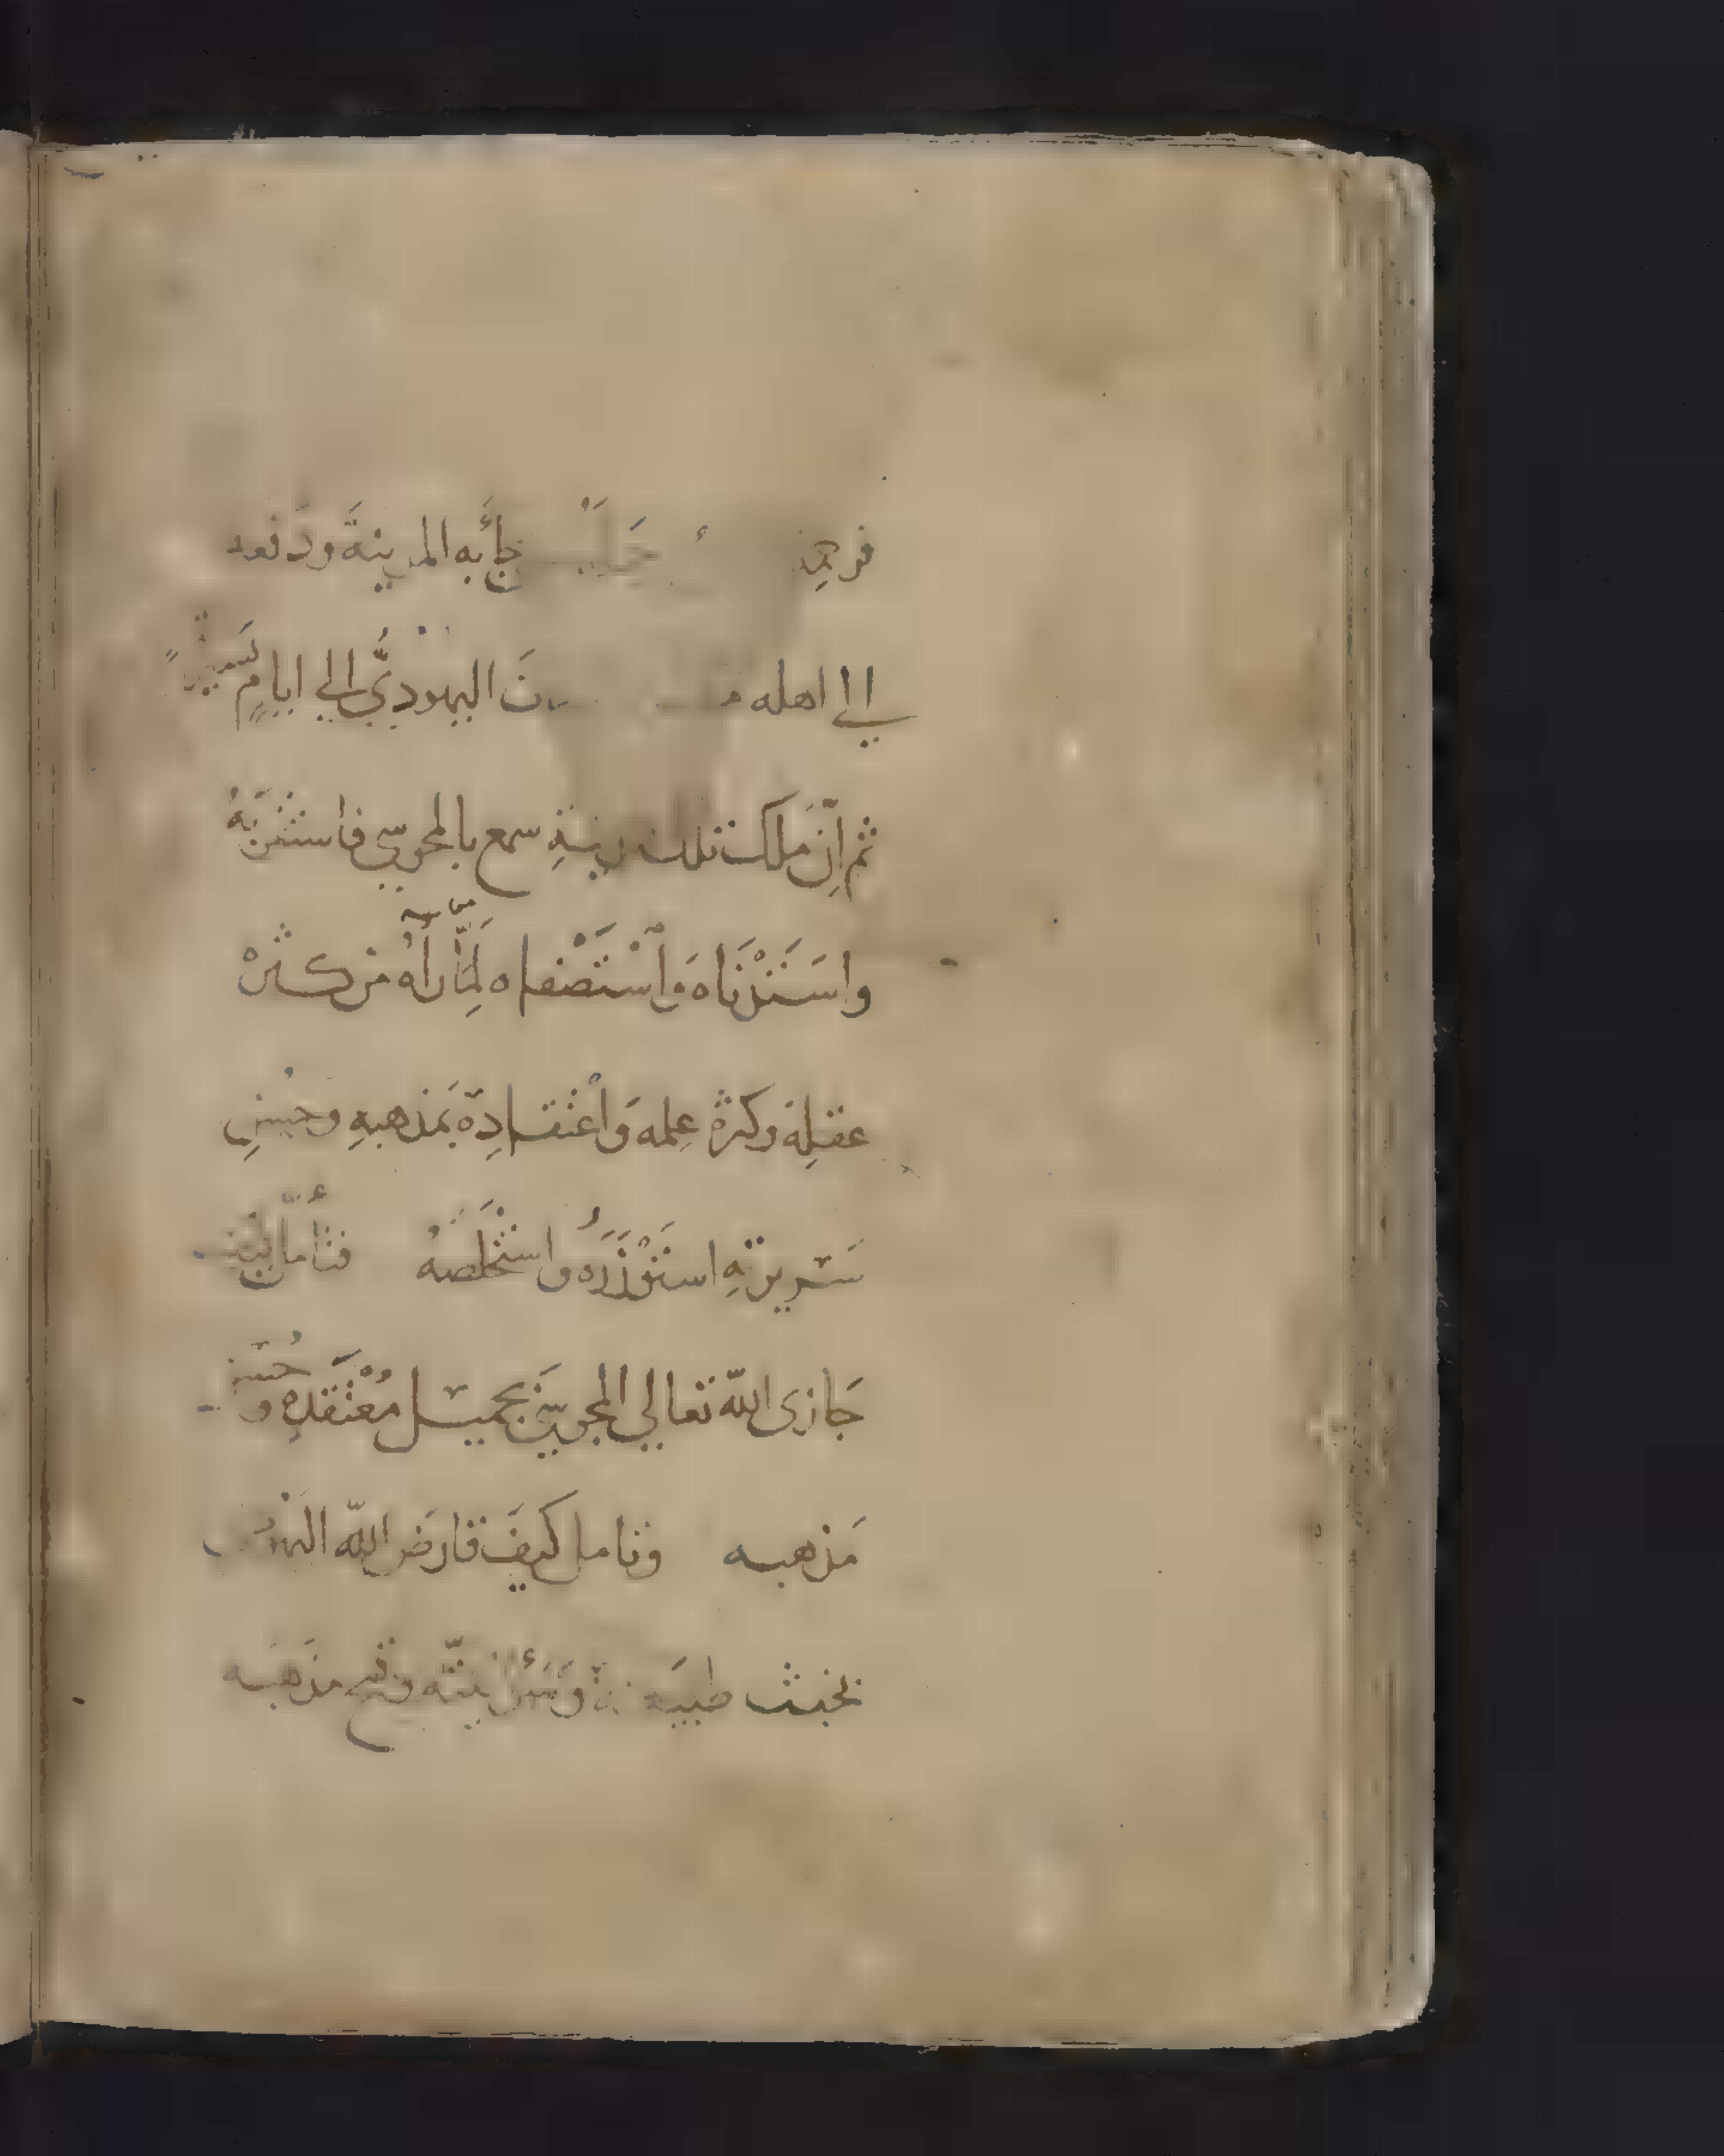 جأبه المدينة ودفعه
الى اهله اليهودي الى ايام يسيرة
ثم إن ملك تلك سمع بالمجوسي فاستقربه
واستدناه واستصفاه لما رآه من كثرة
عقله وكثرة علمه واعتقاده بمذهبه وحسن
سريرته استوزره واستخلصه فتأمل
جازى الله تعالى المجوسي بجميل معتقده وحسن
مذهبه وتامل كيف قارض الله
بخبث نيته وقبح مذهبه